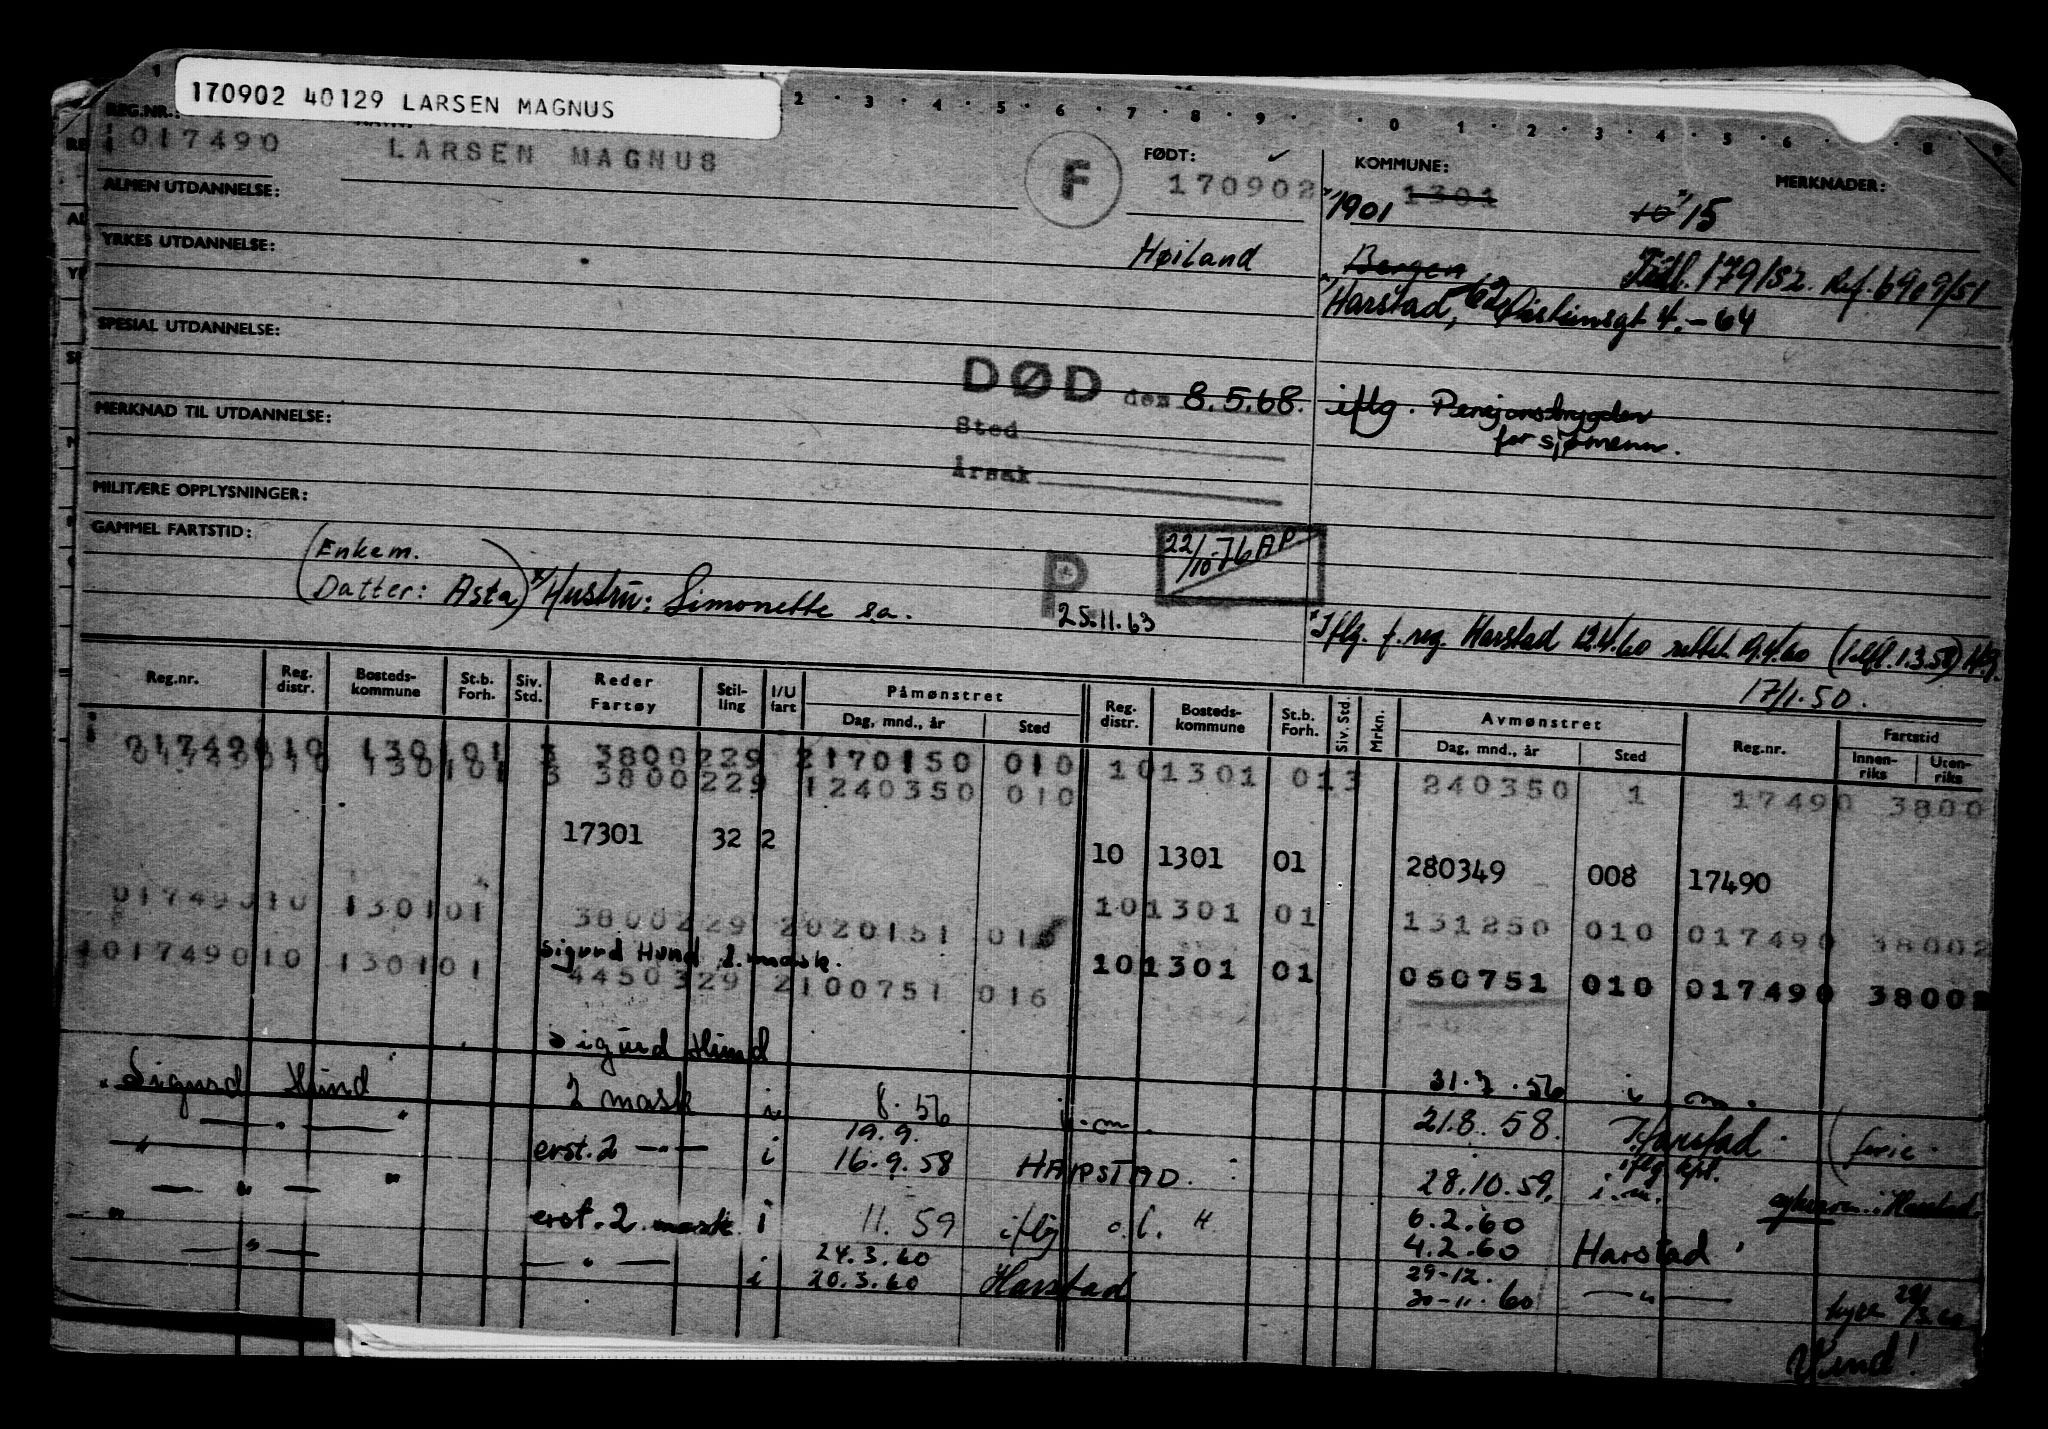 170902 40129 LARSEN MAGNUS
REG.NR.:
017490
LARSEN MAGNUS
F
FØDT:
170902
KOMMUNE:
1301
1901
MERKNADER:
10 15
ALMEN UTDANNELSE:
YRKES UTDANNELSE:
Høiland
Bergen
Tidl. 179/52. Ref. 6909/51
Harstad, 4.-64
SPESIAL UTDANNELSE:
DØD den 8.5.68. iflg. Pensjonstrygden
for sjømenn.
Sted
Årsak
MERKNAD TIL UTDANNELSE:
MILITÆRE OPPLYSNINGER:
GAMMEL FARTSTID:
(Enkem.
Datter: Asta) x/Hustru: Simonette s.a.
P
25.11.63
22/10-76 AP
x Iflg. f. reg. Harstad 12.4.60 rettet 19.4.60
17/1.50.
Reg.nr. Reg. distr. Bosteds-kommune St.b. Forh. Siv. Std. Reder Fartøy Stil-ling I/U fart Påmønstret Dag, mnd., år Sted Reg. distr. Bosteds-kommune St.b. Forh. Siv. Std. Mrkn. Avmønstret Dag, mnd., år Sted Reg.nr. Fartstid Innen-riks Uten-riks
017490 10 1301 01 3 3800 229 2 170150 010
017490 10 1301 01 3 3800 229 1 240350 010 10 1301 01 3 240350 1 17490 3800
17301 32 2 10 1301 01 280349 008 17490
017490 10 1301 01 3800 229 2 020151 010 10 1301 01 131250 010 017490 38002
Sigurd Hund 2. mask.
017490 10 1301 01 4450 329 2 100751 016 10 1301 01 050751 010 017490 38002
Sigurd Hund
Sigurd Hund 2 mask i 8.56 i.m. 31.7.56 i m.
— " — " 19.9. 21.8.58. Harstad. (ferie.
" erst. 2 — " — i 16.9.58 HARSTAD. 28.10.59. i.m. iflg kpt.
— " — " 6.2.60
" erst. 2. mask. i 11.59 iflg o.l. H 4.2.60 Harstad
— " — — " — i 24.3.60 29-12.
i 20.3.60 Harstad 30-11.60 — " —
Vend!